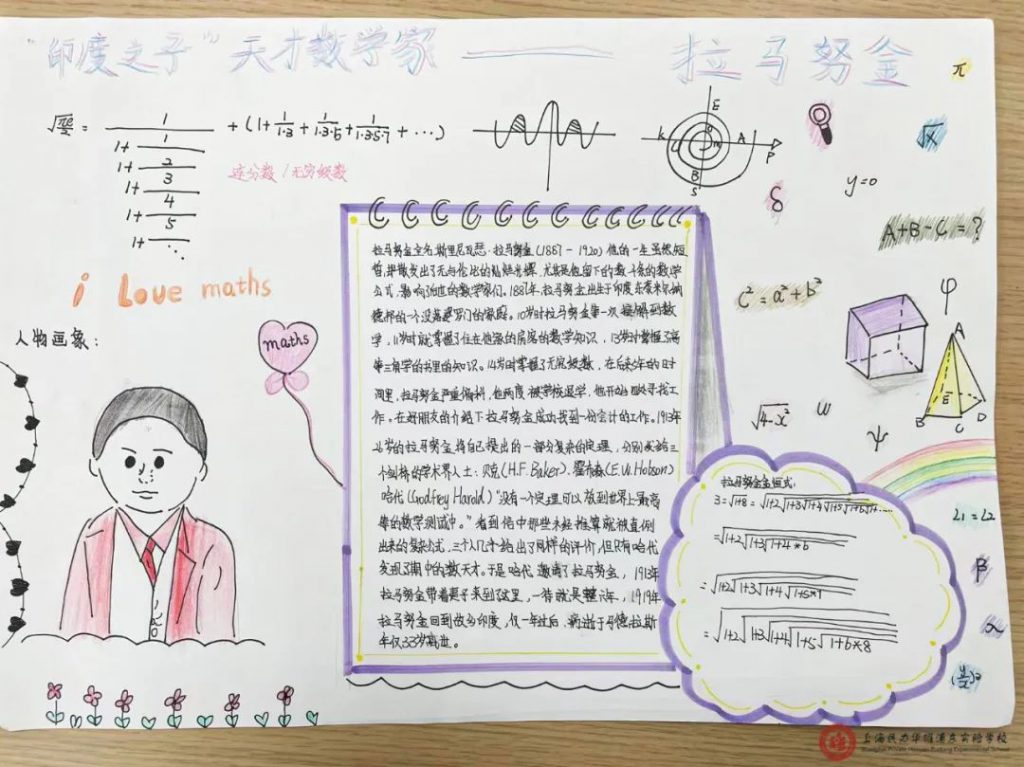 “印度之子”天才数学家——拉马努金
π
√(πe/2) = 1/(1+1/(1+2/(1+3/(1+4/(1+5/(1+⋱)))))) + (1+1/1·3+1/1·3·5+1/1·3·5·7+…)
连分数/无穷级数
E
K
A
P
B
S
√x
y=0
δ
A+B-C=?
i Love maths
C²=a²+b²
φ
人物画像:
maths
A
B
C
D
E
√4-x²
ω
ψ
拉马努金全名斯里尼瓦瑟·拉马努金(1887-1920)他的一生虽然短
暂,却散发出了无与伦比的
尤其是他留下的数千条的数学
公式,影响
的数学家们。1887年,拉马努金出生于印度东
德邦的一个没落婆罗门的家庭。10岁时拉马努金第一次接触到数
学,11岁时就掌握了住在他家的房客的数学知识,13岁时掌握了高
等三角学的书里的知识。14岁时掌握了无穷级数,在后
年的时
间里,拉马努金严重偏科,他两度被学校退学,他开始四处寻找工
作。在好朋友的介绍下拉马努金成功找到一份会计的工作。1913年
岁的拉马努金将自己提出的一部分复杂的定理,分别
给三
个剑桥的学术界人士:贝克(H.F.Baker)、霍布森(E.W.Hobson)
哈代(Godfrey Harold)“没有一个定理可以放到世界上最高
等的数学测试中。”看到信中那些未经推算就被直例
出来的复杂公式,三个人几乎给出了同样的评价,但只有哈代
发现了期中的数天才。于是哈代邀请了拉马努金,
拉马努金带着妻子来到了这里,一待就是整六年,1919年
拉马努金回到故乡印度,仅一年过后,病逝于马德拉斯
年仅33岁离世。
拉马努金恒式:
3=√1+8=√1+2√1+3√1+4√1+5√1+6√1+……
=√1+2√1+3√1+4*6
=√1+2√1+3√1+4√1+5*7
=√1+2√1+3√1+4√1+5√1+6*8
∠1=∠2
β
α
(y/x)²
上海民办华曜浦东实验学校